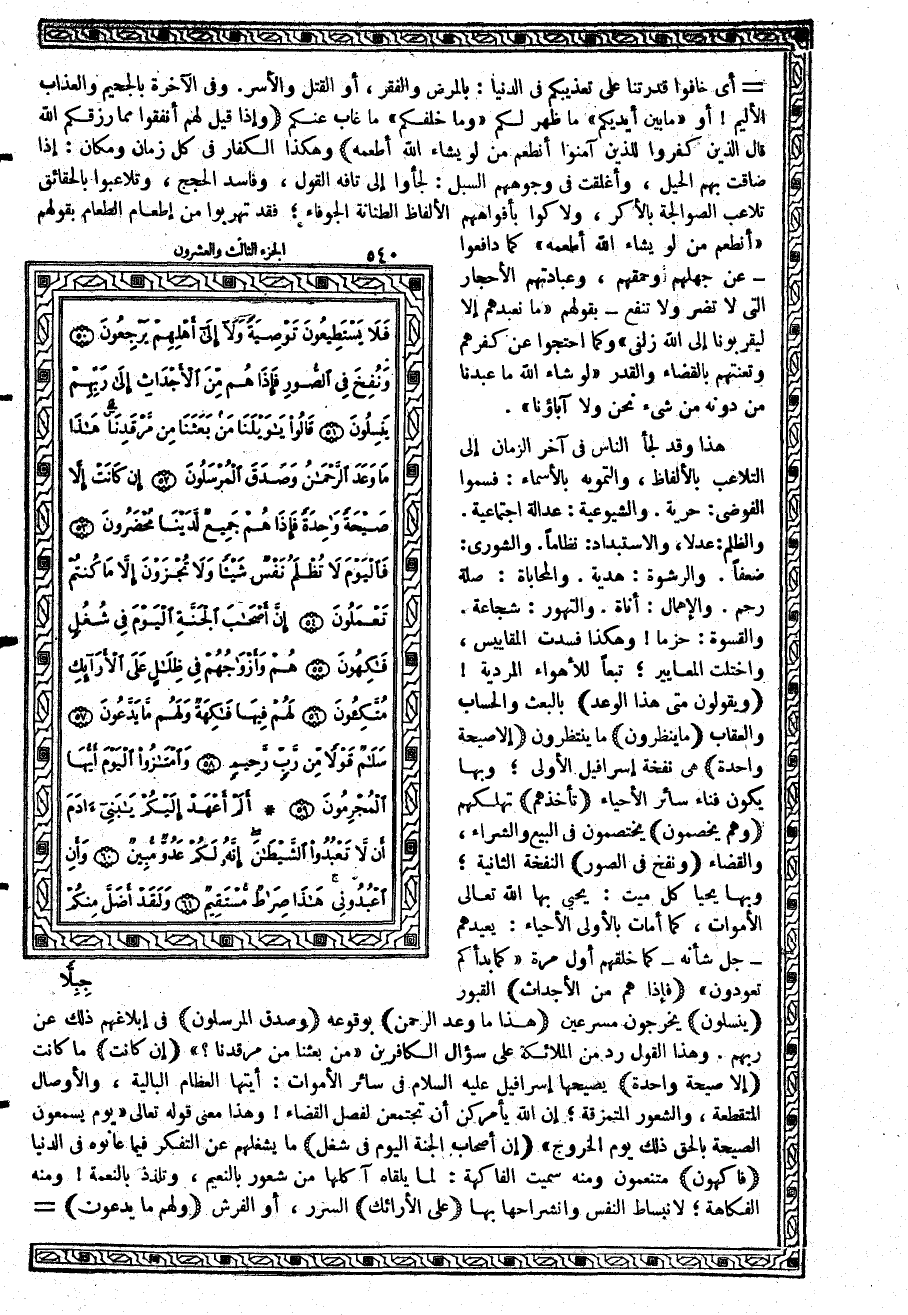 = أى خافوا قدرتنا على تعذيبكم فى الدنيا : بالمرض والفقر ، أو القتل والأسر. وفى الآخرة بالجحيم والعذاب
الأليم ! أو «مابين أيديكم» ما ظهر لـكم «وما خلفـكم» ما غاب عنـكم ﴿وإذا قيل لهم أنفقوا مما رزقـكم الله
قال الذين كفروا للذين آمنوا أنطعم من لو يشاء الله أطعمه﴾ وهكذا الـكفار فى كل زمان ومكان : إذا
ضاقت بهم الحيل ، وأغلقت فى وجوههم السبل : لجأوا إلى تافه القول ، وفاسد الحجج ، وتلاعبوا بالحقائق
تلاعب الصوالجة بالأكر ، ولاكوا بأفواههم الألفاظ الطنانة الجوفاء ؛ فقد تهربوا من إطعام الطعام بقولهم
«أنطعم من لو يشاء الله أطعمه» كما دافعوا
ـ عن جهلهم وحمقهم ، وعبادتهم الأحجار
التى لا تضر ولا تنفع ـ بقولهم «ما نعبدهم إلا
ليقربونا إلى الله زلفى» وكما احتجوا عن كفرهم
وتعنتهم بالقضاء والقدر «لو شاء الله ما عبدنا
من دونه من شىء نحن ولا آباؤنا» .
هذا وقد لجأ الناس فى آخر الزمان إلى
التلاعب بالألفاظ ، والتمويه بالأسماء : فسموا
الفوضى: حرية . والشيوعية : عدالة اجتماعية .
والظلم:عدلا، والاستبداد: نظاماً. والشورى:
ضعفاً . والرشوة : هدية . والمحاباة : صلة
رحم . والإهمال : أناة . والتهور : شجاعة .
والقسوة : حزما ! وهكذا فسدت المقاييس ،
واختلت المعـايير ؛ تبعاً للأهواء المردية !
﴿ويقولون متى هذا الوعد﴾ بالبعث والحساب
والعقاب ﴿ماينظرون﴾ ما ينتظرون ﴿إلاصيحة
واحدة﴾ هى نفخة إسرافيل الأولى ؛ وبهـا
يكون فناء سائر الأحياء ﴿تأخذهم﴾ تهلـكهم
﴿وهم يخصمون﴾ يختصمون فى البيع والشراء ،
والقضاء ﴿ونفخ فى الصور﴾ النفخة الثانية ؛
وبهـا يحيا كل ميت : يحيى بها الله تعـالى
الأموات ، كما أمات بالأولى الأحياء : يعيدهم
ـ جل شأنه ـ كما خلقهم أول مرة «كما بدأكم
تعودون» ﴿فإذا هم من الأجداث﴾ القبور
الجزء الثالث والعشرون ٥٤٠
فَلَا يَسْتَطِيعُونَ تَوْصِيَةً وَلَآ إِلَىٰٓ أَهْلِهِمْ يَرْجِعُونَ ۝٥٠
وَنُفِخَ فِى ٱلصُّورِ فَإِذَا هُم مِّنَ ٱلْأَجْدَاثِ إِلَىٰ رَبِّهِمْ
يَنسِلُونَ ۝٥١ قَالُوا۟ يَـٰوَيْلَنَا مَنۢ بَعَثَنَا مِن مَّرْقَدِنَا ۜ هَـٰذَا
مَا وَعَدَ ٱلرَّحْمَـٰنُ وَصَدَقَ ٱلْمُرْسَلُونَ ۝٥٢ إِن كَانَتْ إِلَّا
صَيْحَةً وَٰحِدَةً فَإِذَا هُمْ جَمِيعٌ لَّدَيْنَا مُحْضَرُونَ ۝٥٣
فَٱلْيَوْمَ لَا تُظْلَمُ نَفْسٌ شَيْـًٔا وَلَا تُجْزَوْنَ إِلَّا مَا كُنتُمْ
تَعْمَلُونَ ۝٥٤ إِنَّ أَصْحَـٰبَ ٱلْجَنَّةِ ٱلْيَوْمَ فِى شُغُلٍ
فَـٰكِهُونَ ۝٥٥ هُمْ وَأَزْوَٰجُهُمْ فِى ظِلَـٰلٍ عَلَى ٱلْأَرَآئِكِ
مُتَّكِـُٔونَ ۝٥٦ لَهُمْ فِيهَا فَـٰكِهَةٌ وَلَهُم مَّا يَدَّعُونَ ۝٥٧
سَلَـٰمٌ قَوْلًا مِّن رَّبٍّ رَّحِيمٍ ۝٥٨ وَٱمْتَـٰزُوا۟ ٱلْيَوْمَ أَيُّهَا
ٱلْمُجْرِمُونَ ۝٥٩ * أَلَمْ أَعْهَدْ إِلَيْكُمْ يَـٰبَنِىٓ ءَادَمَ
أَن لَّا تَعْبُدُوا۟ ٱلشَّيْطَـٰنَ ۖ إِنَّهُۥ لَكُمْ عَدُوٌّ مُّبِينٌ ۝٦٠ وَأَنِ
ٱعْبُدُونِى ۚ هَـٰذَا صِرَٰطٌ مُّسْتَقِيمٌ ۝٦١ وَلَقَدْ أَضَلَّ مِنكُمْ
جِبِلًّا
﴿ينسلون﴾ يخرجون مسرعين ﴿هـذا ما وعد الرحمن﴾ بوقوعه ﴿وصدق المرسلون﴾ فى إبلاغهم ذلك عن
ربهم . وهذا القول رد من الملائـكة على سؤال الـكافرين «من بعثنا من مرقدنا ؟» ﴿إن كانت﴾ ما كانت
﴿إلا صيحة واحدة﴾ يصيحها إسرافيل عليه السلام فى سائر الأموات : أيتها العظام البالية ، والأوصال
المتقطعة ، والشعور المتمزقة ؛ إن الله يأمركن أن تجتمعن لفصل القضاء ! وهذا معنى قوله تعالى «يوم يسمعون
الصيحة بالحق ذلك يوم الخروج» ﴿إن أصحاب الجنة اليوم فى شغل﴾ ما يشغلهم عن التفكر فيما عانوه فى الدنيا
﴿فاكهون﴾ متنعمون ومنه سميت الفاكهة : لمـا يلقاه آكلها من شعور بالنعيم ، وتلذذ بالنعمة ! ومنه
الفـكاهة ؛ لانبساط النفس وانشراحها بهـا ﴿على الأرائك﴾ السرر ، أو الفرش ﴿ولهم ما يدعون﴾ =